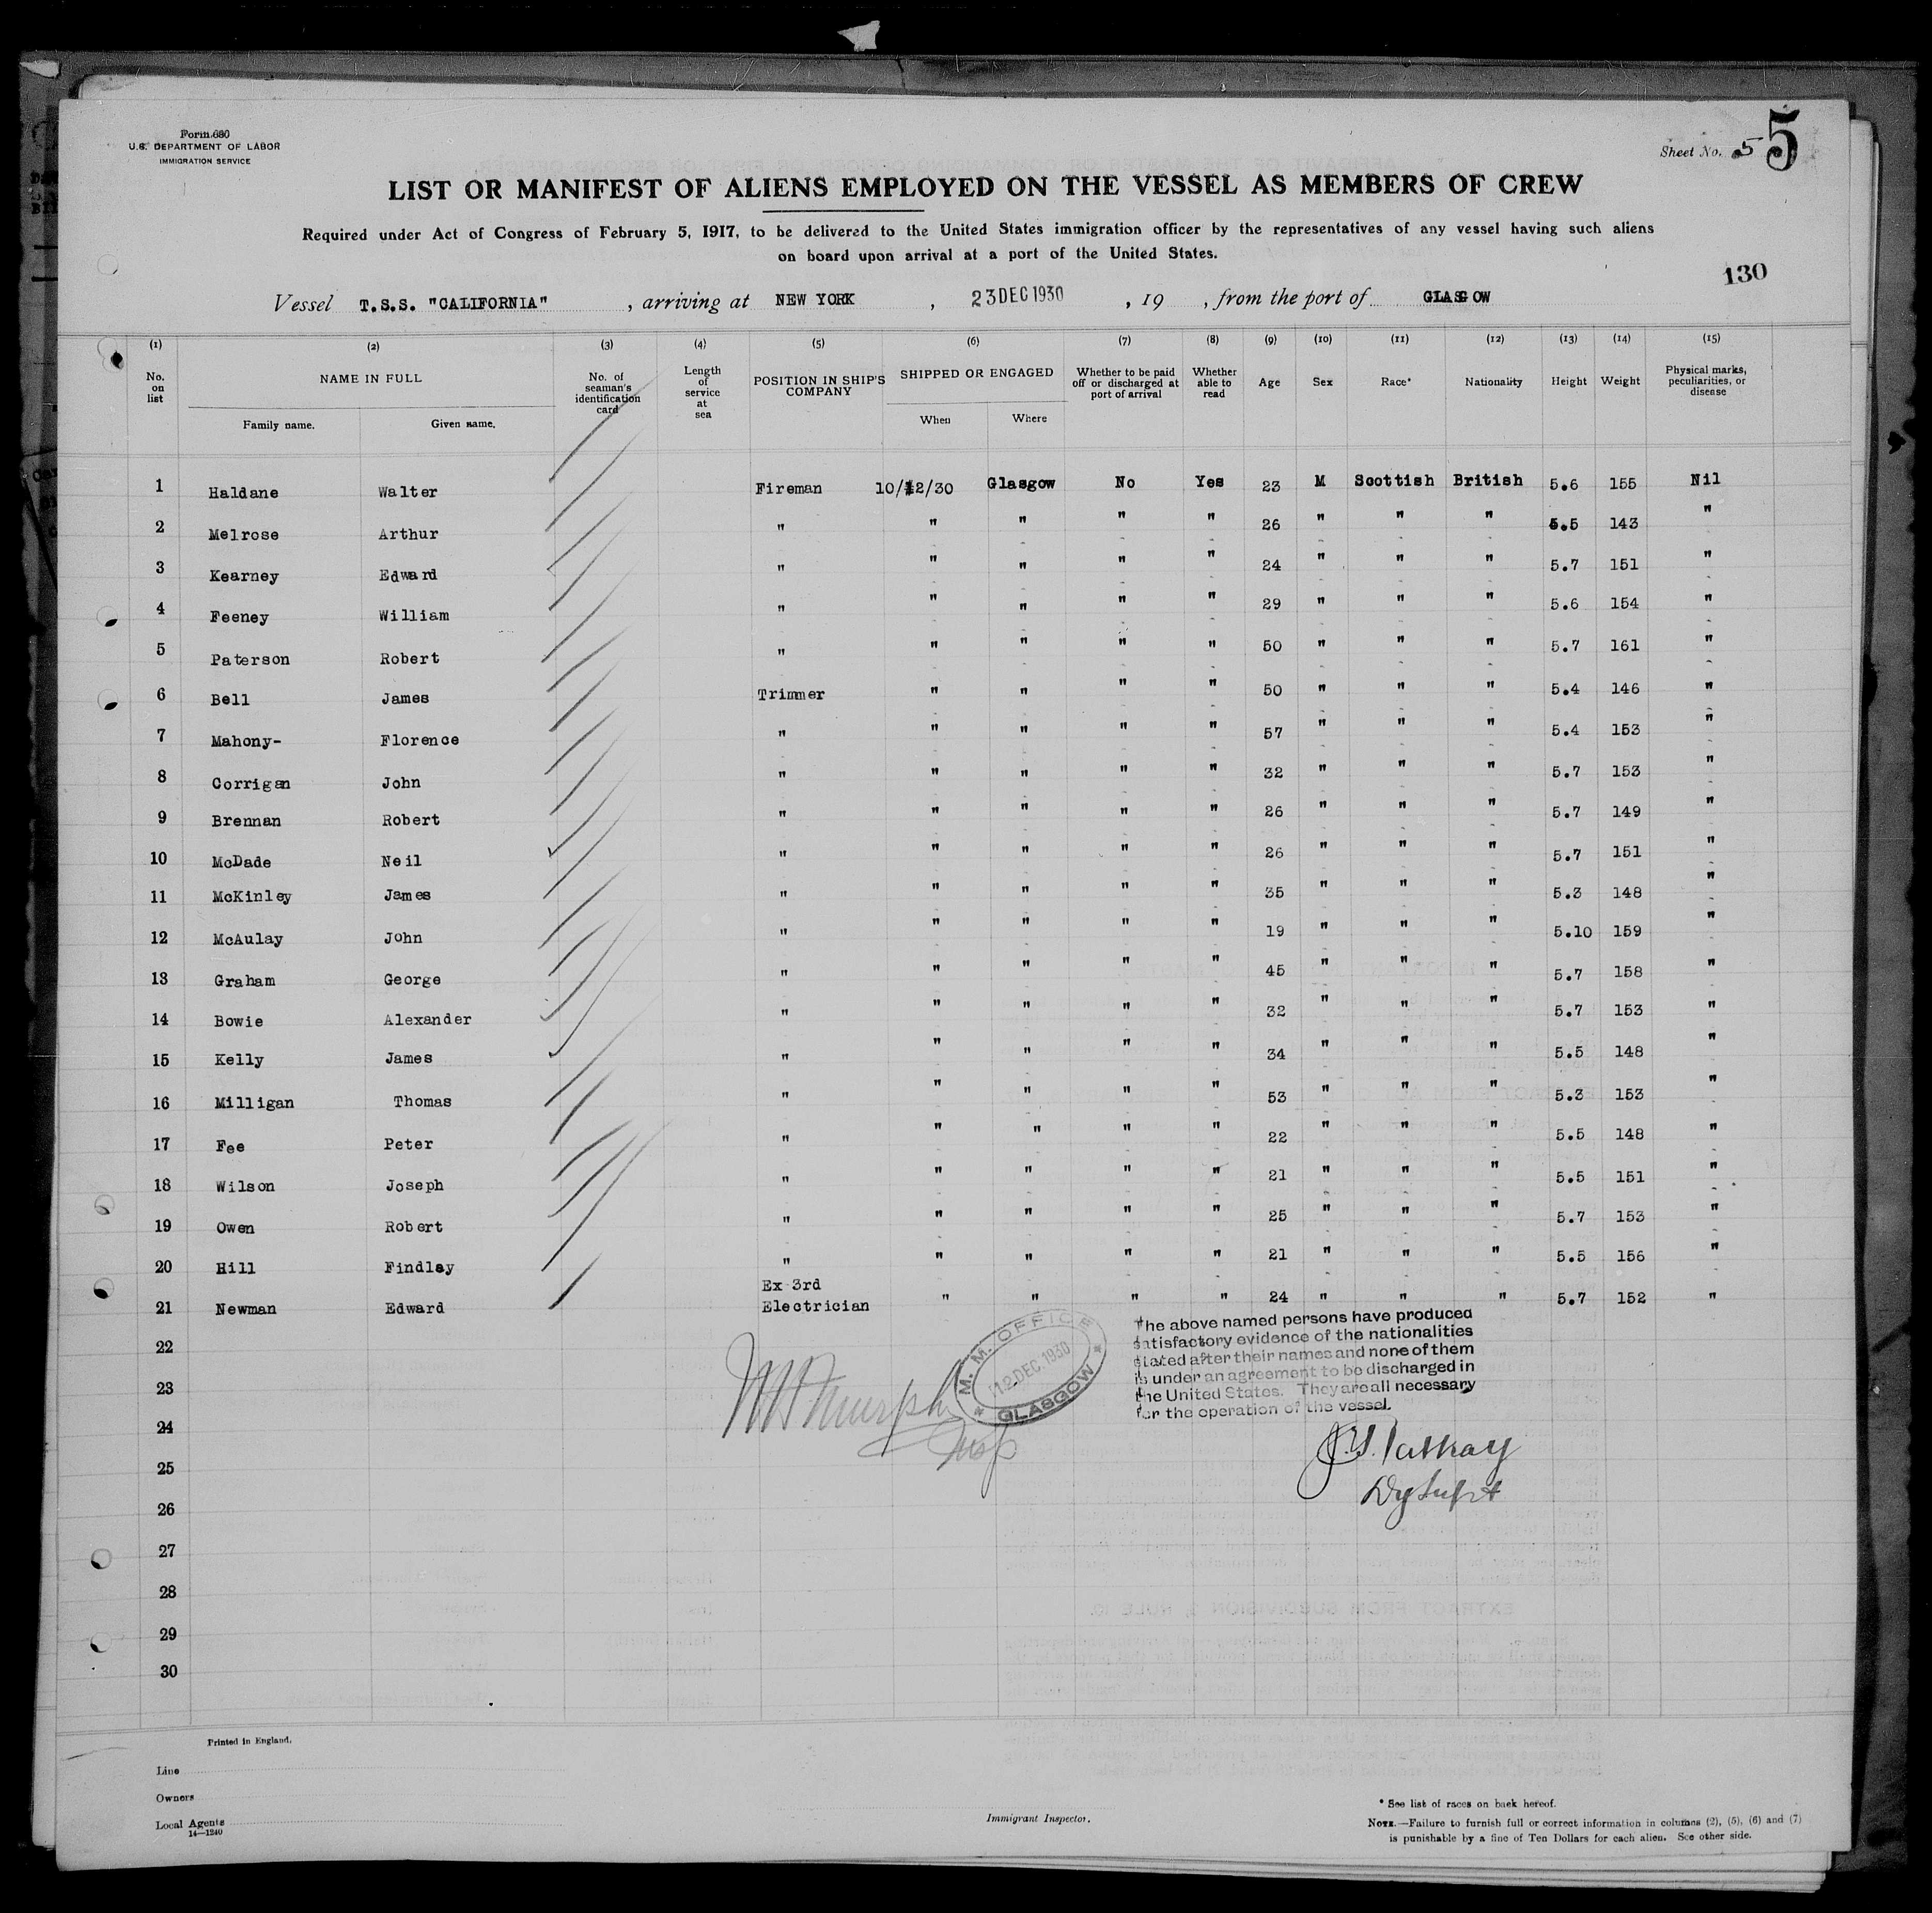 Form 680
U.S. DEPARTMENT OF LABOR
IMMIGRATION SERVICE
Sheet No. 5 5
LIST OR MANIFEST OF ALIENS EMPLOYED ON THE VESSEL AS MEMBERS OF CREW
Required under Act of Congress of February 5, 1917, to be delivered to the United States immigration officer by the representatives of any vessel having such aliens
on board upon arrival at a port of the United States.
130
Vessel T.S.S. "CALIFORNIA" , arriving at NEW YORK , 23 DEC 1930 , 19 , from the port of GLASGOW
(1) (2) (3) (4) (5) (6) (7) (8) (9) (10) (11) (12) (13) (14) (15)
No. on list NAME IN FULL Family name. Given name. No. of seaman's identification card Length of service at sea POSITION IN SHIP'S COMPANY SHIPPED OR ENGAGED When Where Whether to be paid off or discharged at port of arrival Whether able to read Age Sex Race* Nationality Height Weight Physical marks, peculiarities, or disease
1 Haldane Walter Fireman 10/12/30 Glasgow No Yes 23 M Scottish British 5.6 155 Nil
2 Melrose Arthur " " " " " 26 " " " 5.5 143 "
3 Kearney Edward " " " " " 24 " " " 5.7 151 "
4 Feeney William " " " " " 29 " " " 5.6 154 "
5 Paterson Robert " " " " " 50 " " " 5.7 161 "
6 Bell James Trimmer " " " " 50 " " " 5.4 146 "
7 Mahony- Florence " " " " " 57 " " " 5.4 153 "
8 Corrigan John " " " " " 32 " " " 5.7 153 "
9 Brennan Robert " " " " " 26 " " " 5.7 149 "
10 McDade Neil " " " " " 26 " " " 5.7 151 "
11 McKinley James " " " " " 35 " " " 5.3 148 "
12 McAulay John " " " " " 19 " " " 5.10 159 "
13 Graham George " " " " " 45 " " " 5.7 158 "
14 Bowie Alexander " " " " " 32 " " " 5.7 153 "
15 Kelly James " " " " " 34 " " " 5.5 148 "
16 Milligan Thomas " " " " " 53 " " " 5.3 153 "
17 Fee Peter " " " " " 22 " " " 5.5 148 "
18 Wilson Joseph " " " " " 21 " " " 5.5 151 "
19 Owen Robert " " " " " 25 " " " 5.7 153 "
20 Hill Findlay " " " " " 21 " " " 5.5 156 "
21 Newman Edward Ex 3rd Electrician " " " " 24 " " " 5.7 152 "
22
23
24
25
26
27
28
29
30
The above named persons have produced
satisfactory evidence of the nationalities
stated after their names and none of them
is under an agreement to be discharged in
the United States. They are all necessary
for the operation of the vessel.
M. M. OFFICE
12 DEC. 1930
* GLASGOW *
Murph
Insp
Dy Supt
Printed in England.
Line
Owners
Local Agents
14—1240
Immigrant Inspector.
* See list of races on back hereof.
NOTE.—Failure to furnish full or correct information in columns (2), (5), (6) and (7)
is punishable by a fine of Ten Dollars for each alien. See other side.